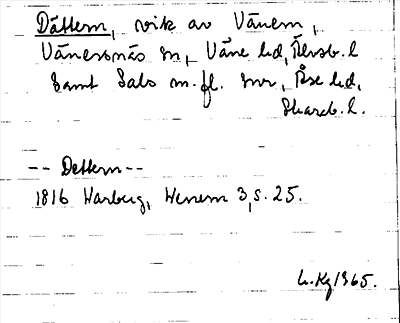 Dättern, vik av Vänern,
Vänersnäs sn, Väne hd, Älvsb. l
samt Sals m.fl. snr, Åse hd,
Skarab. l.
-- Dettern--
1816 Warberg, Wenern 3, s. 25.
Kg 1965.